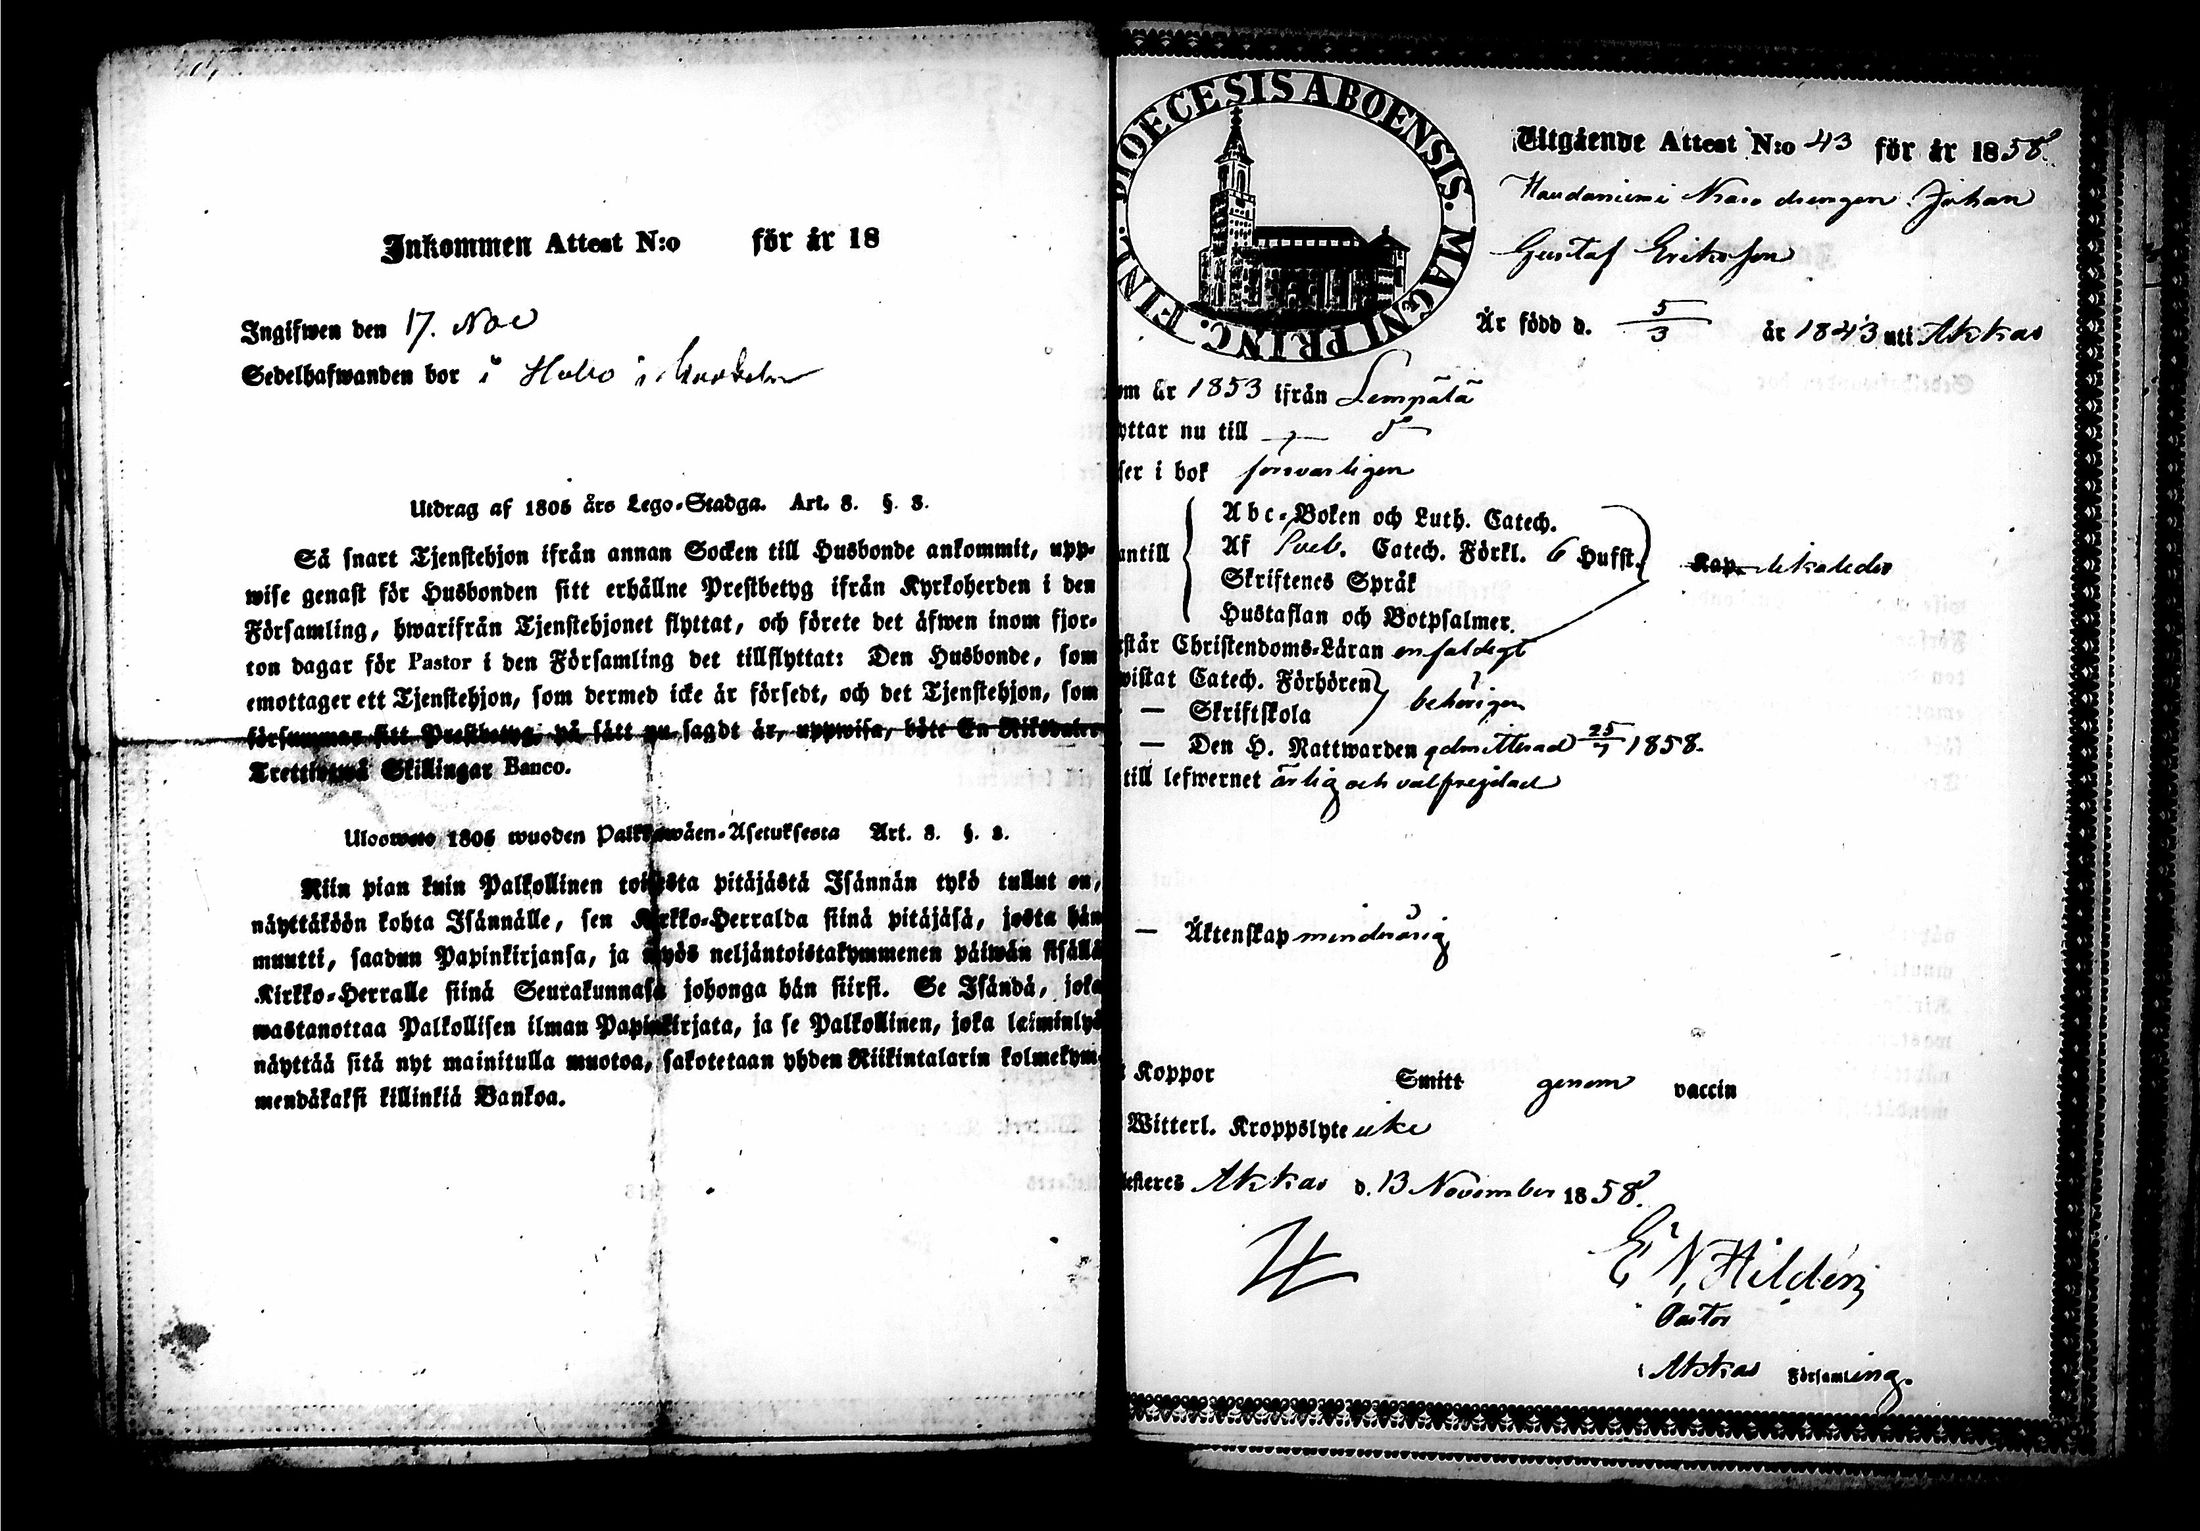 Inkommen Attest N:o för år 18
Ingifwen den 17. Nov
Sedelhafwanden bor i
Utdrag af 1805 års Lego-Stadga. Art. 8. §. 3.
Så snart Tjenstehjon ifrån annan Socken till Husbonde ankommit, upp-
wise genast för Husbonden sitt erhållne Prestbetyg ifrån Kyrkoherden i den
Församling, hwarifrån Tjenstehjonet flyttat, och förete det äfwen inom fjor-
ton dagar för Pastor i den Församling det tillflyttat: Den Husbonde, som
emottager ett Tjenstehjon, som dermed icke är försedt, och det Tjenstehjon, som
försummar sitt Prestbetyg, på sätt nu sagdt är, uppwisa, böte En Riksdaler
Trettiotwå Skillingar Banco.
Uloswето 1805 wuoden Palkkawäen-Asetuksesta Art. 8. §. 3.
Niin pian kuin Palkollinen toisesta pitäjästä Isännän tykö tullut on,
näyttäköön kohta Isännälle, sen Kirkko-Herralda siinä pitäjäsä, josta hän
muutti, saadun Papinkirjansa, ja myös neljäntoistakymmenen päiwän sisällä
Kirkko-Herralle siinä Seurakunnasa johonga hän siirsi. Se Isändä, joka
wastanottaa Palkollisen ilman Papinkirjata, ja se Palkollinen, joka laiminlyö
näyttää sitä nyt mainitulla muotoa, sakotetaan yhden Riikintalarin kolmekym-
mendäkaksi killinkiä Bankoa.
DIOECESIS ABOENSIS. MAGNI PRINC. FINL.
Utgående Attest N:o 43 för år 1858.
drengen Johan
Gustaf Eriksson
Är född d. 5/3 år 1843 uti Akkas
om år 1853 ifrån Lempälä
yttar nu till
ser i bok försvarligen
antill
Abc-Boken och Luth. Catech.
Af Sveb. Catech. Förkl. 6 Hufst.
Skriftenes Språk
Hustaflan och Botpsalmer.
Kap.
rstår Christendoms-Läran enfaldigt
wistat Catech. Förhören
— Skriftskola
behörigen
— Den H. Nattwarden admitterad 25/7 1858.
till lefwernet ärlig och välfrejdad
— Äktenskap minderårig
Koppor Smitt genom vaccin
Witterl. Kroppslyte icke
esteres Akkas d. 13 November 1858.
E N Hildén
Pastor
i Akkas Församling.